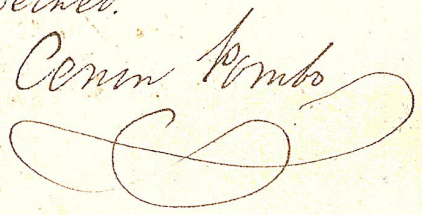 Cenon Pombo